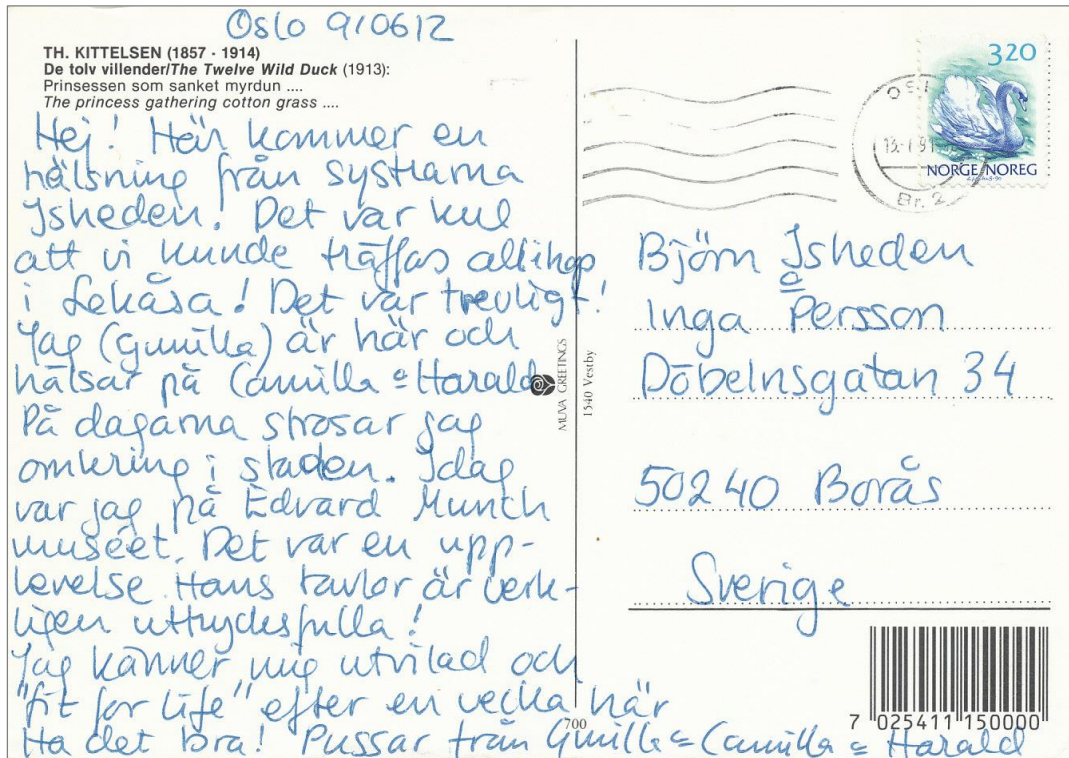 Oslo 910612
TH. KITTELSEN (1857 - 1914)
De tolv villender/The Twelve Wild Duck (1913):
Prinsessen som sanket myrdun ....
The princess gathering cotton grass ....
Hej! Här kommer en
hälsning från systrarna
Isheden! Det var kul
att vi kunde träffas allihop
i Lekåsa! Det var trevligt!
Jag (Gunilla) är här och
hälsar på Camilla & Harald
På dagarna strosar jag
omkring i staden. Idag
var jag på Edvard Munch
muséet. Det var en upp-
levelse. Hans tavlor är verk-
ligen uttrycksfulla!
Jag känner mig utvilad och
"fit for life" efter en vecka här
Ha det bra! Pussar från Gunilla & Camilla & Harald
MUVA GREETINGS
1540 Vestby
700
320
NORGE NOREG
Br. 2
Björn Isheden
&
Inga Persson
Döbelnsgatan 34
50240 Borås
Sverige
7 025411 150000